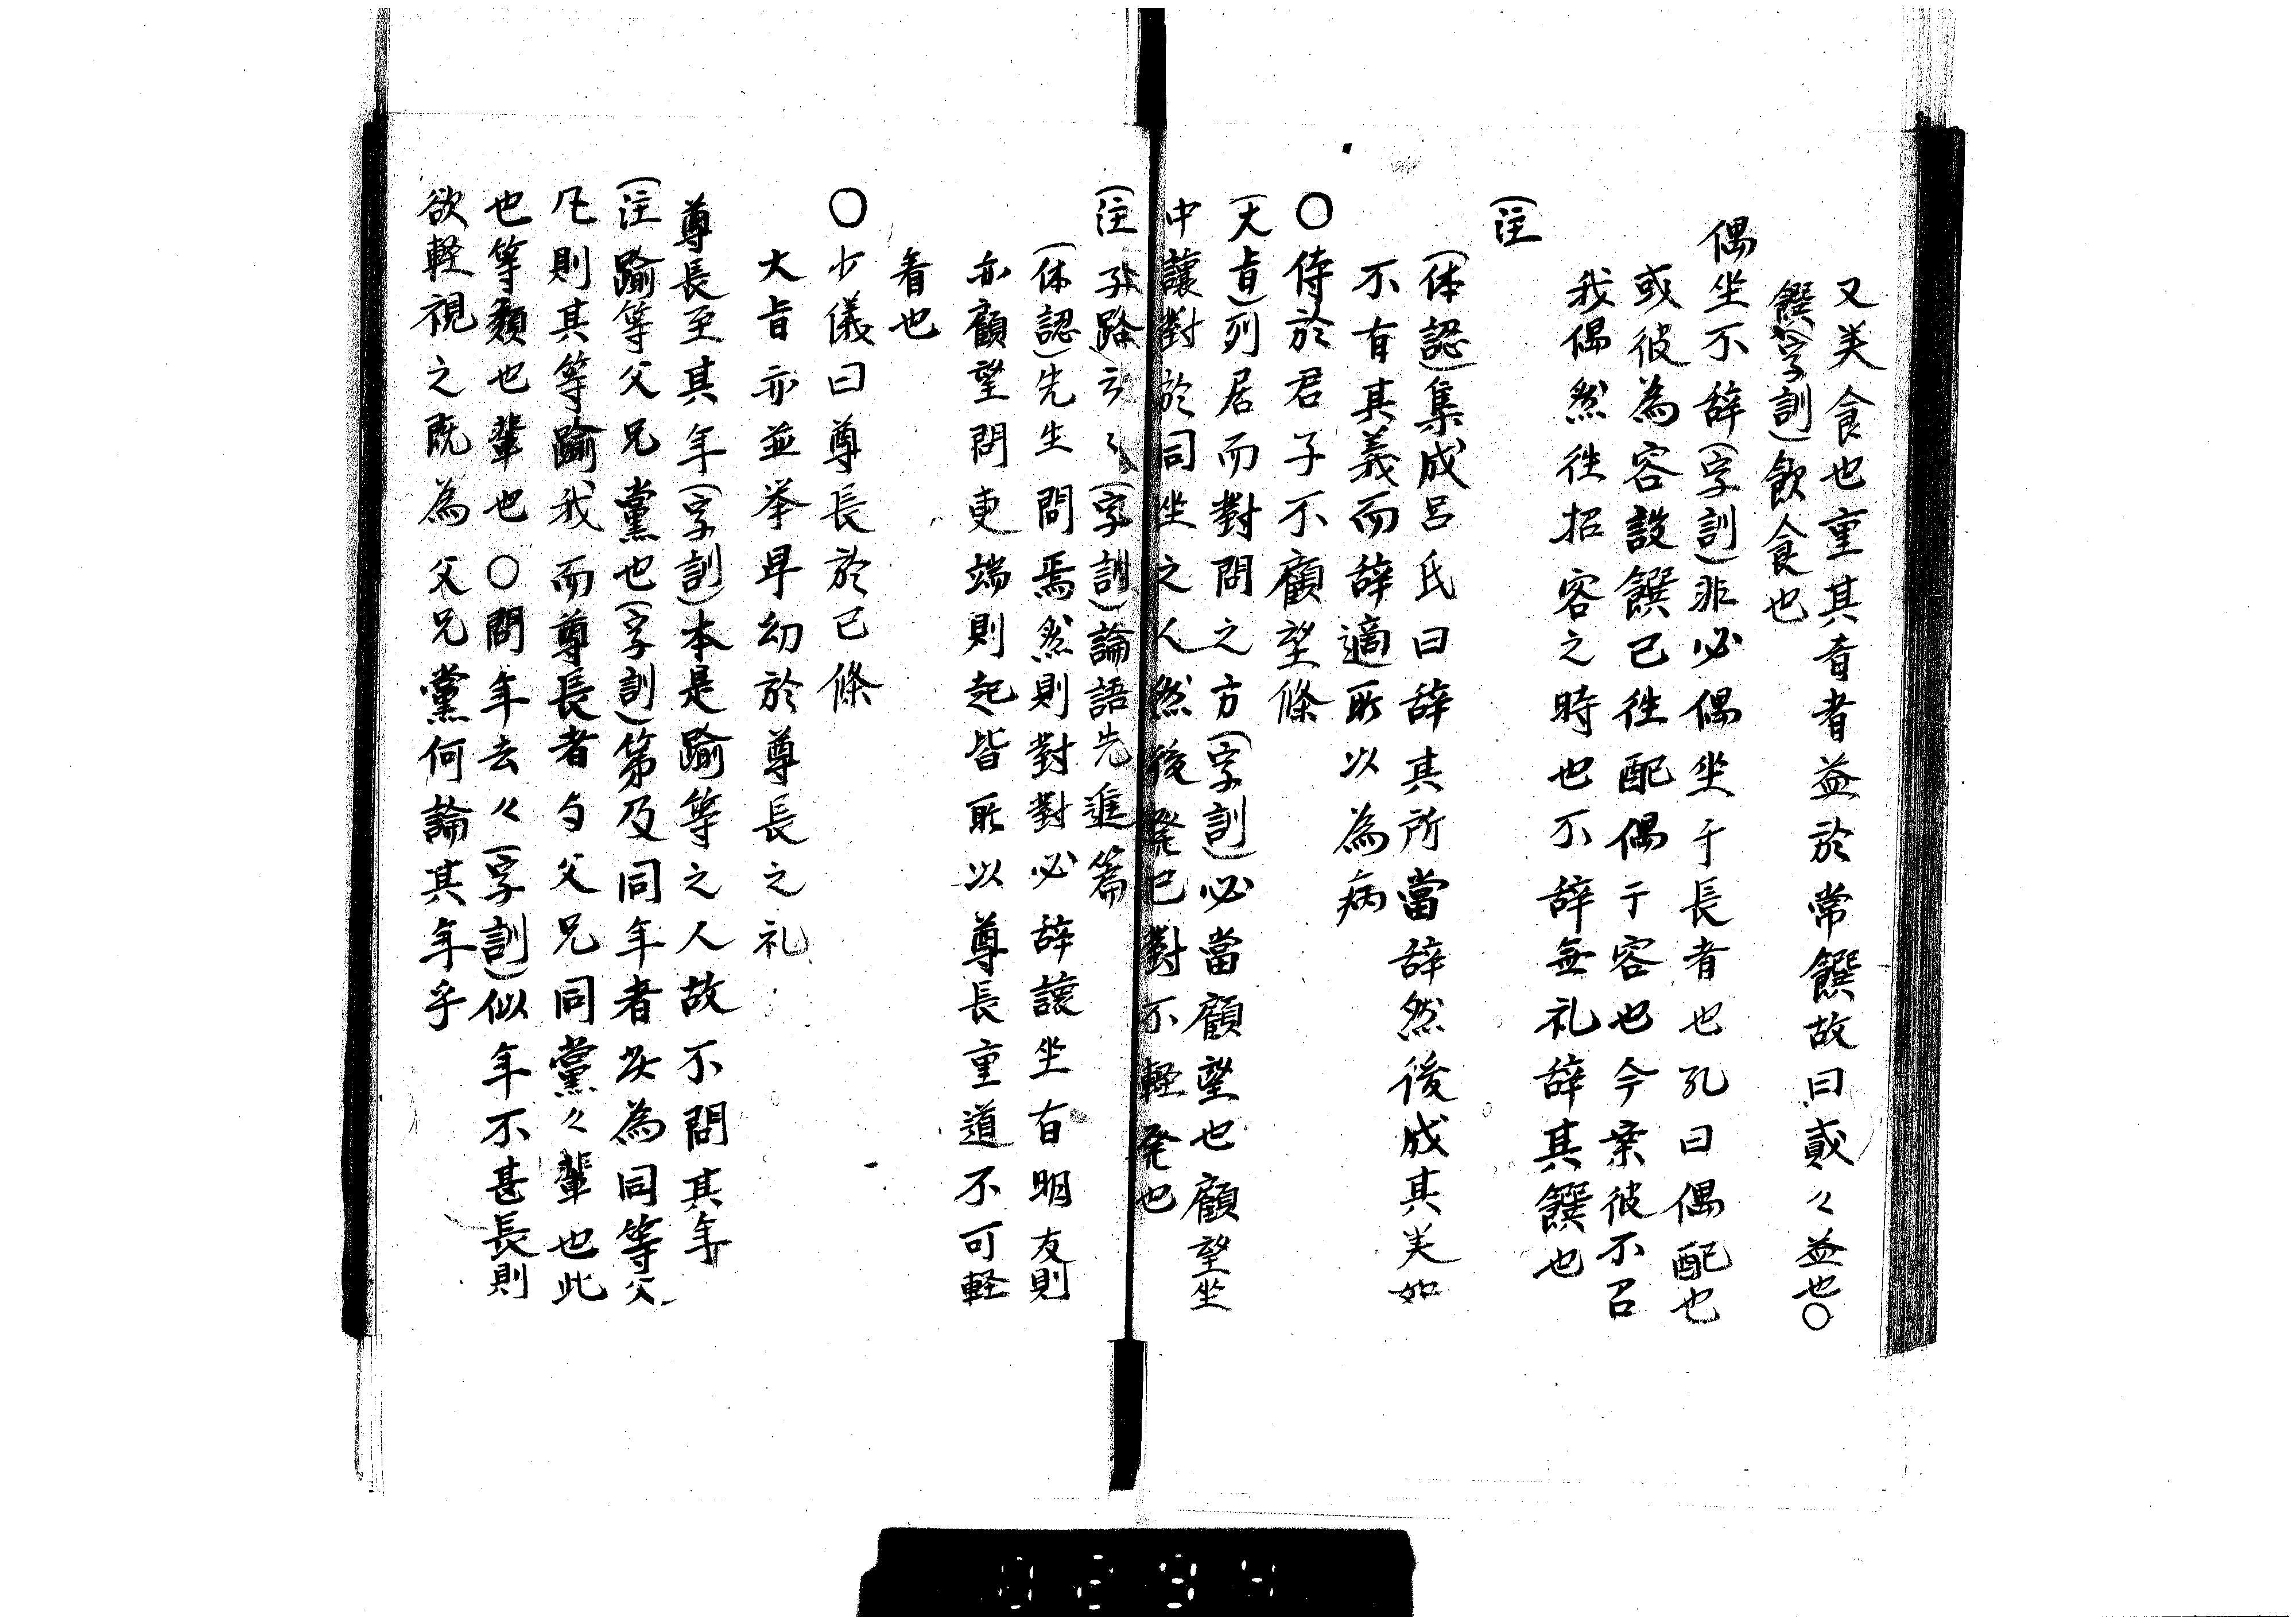 又美食也重其肴者益於常饌故曰貳々益也〇
饌(字訓)飲食也
偶坐不辞(字訓)非必偶坐于長者也孔曰偶配也
或彼為容設饌己往配偶于容也今案彼不召
我偶然往招容之時也不辞無礼辞其饌也
(注
(体認)集成呂氏曰辞其所當辞然後成其美如
不有其義而辞適所以為病
〇侍於君子不顧望條
(大旨)列居而對問之方(字訓)必當顧望也顧望坐
中讓對於同坐之人然後発己對不軽発也
(注 子路云々(字訓)論語先進篇
(体認)先生問焉然則對對必辞讓坐有朋友則
亦顧望問更端則起皆所以尊長重道不可軽
看也
〇少儀曰尊長於己條
大旨亦並挙卑幼於尊長之礼
尊長至其年(字訓)本是踰等之人故不問其年
(注 踰等父兄黨也(字訓)第及同年者此為同等父
兄則其等踰我而尊長者与父兄同黨々輩也此
也等類也輩也〇問年去々(字訓)似年不甚長則
欲軽視之既為父兄黨何論其年乎